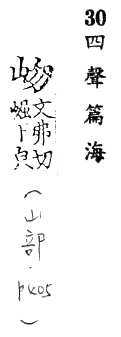 30 四聲篇海
岉文弗切崛卜皃(山部.P405)